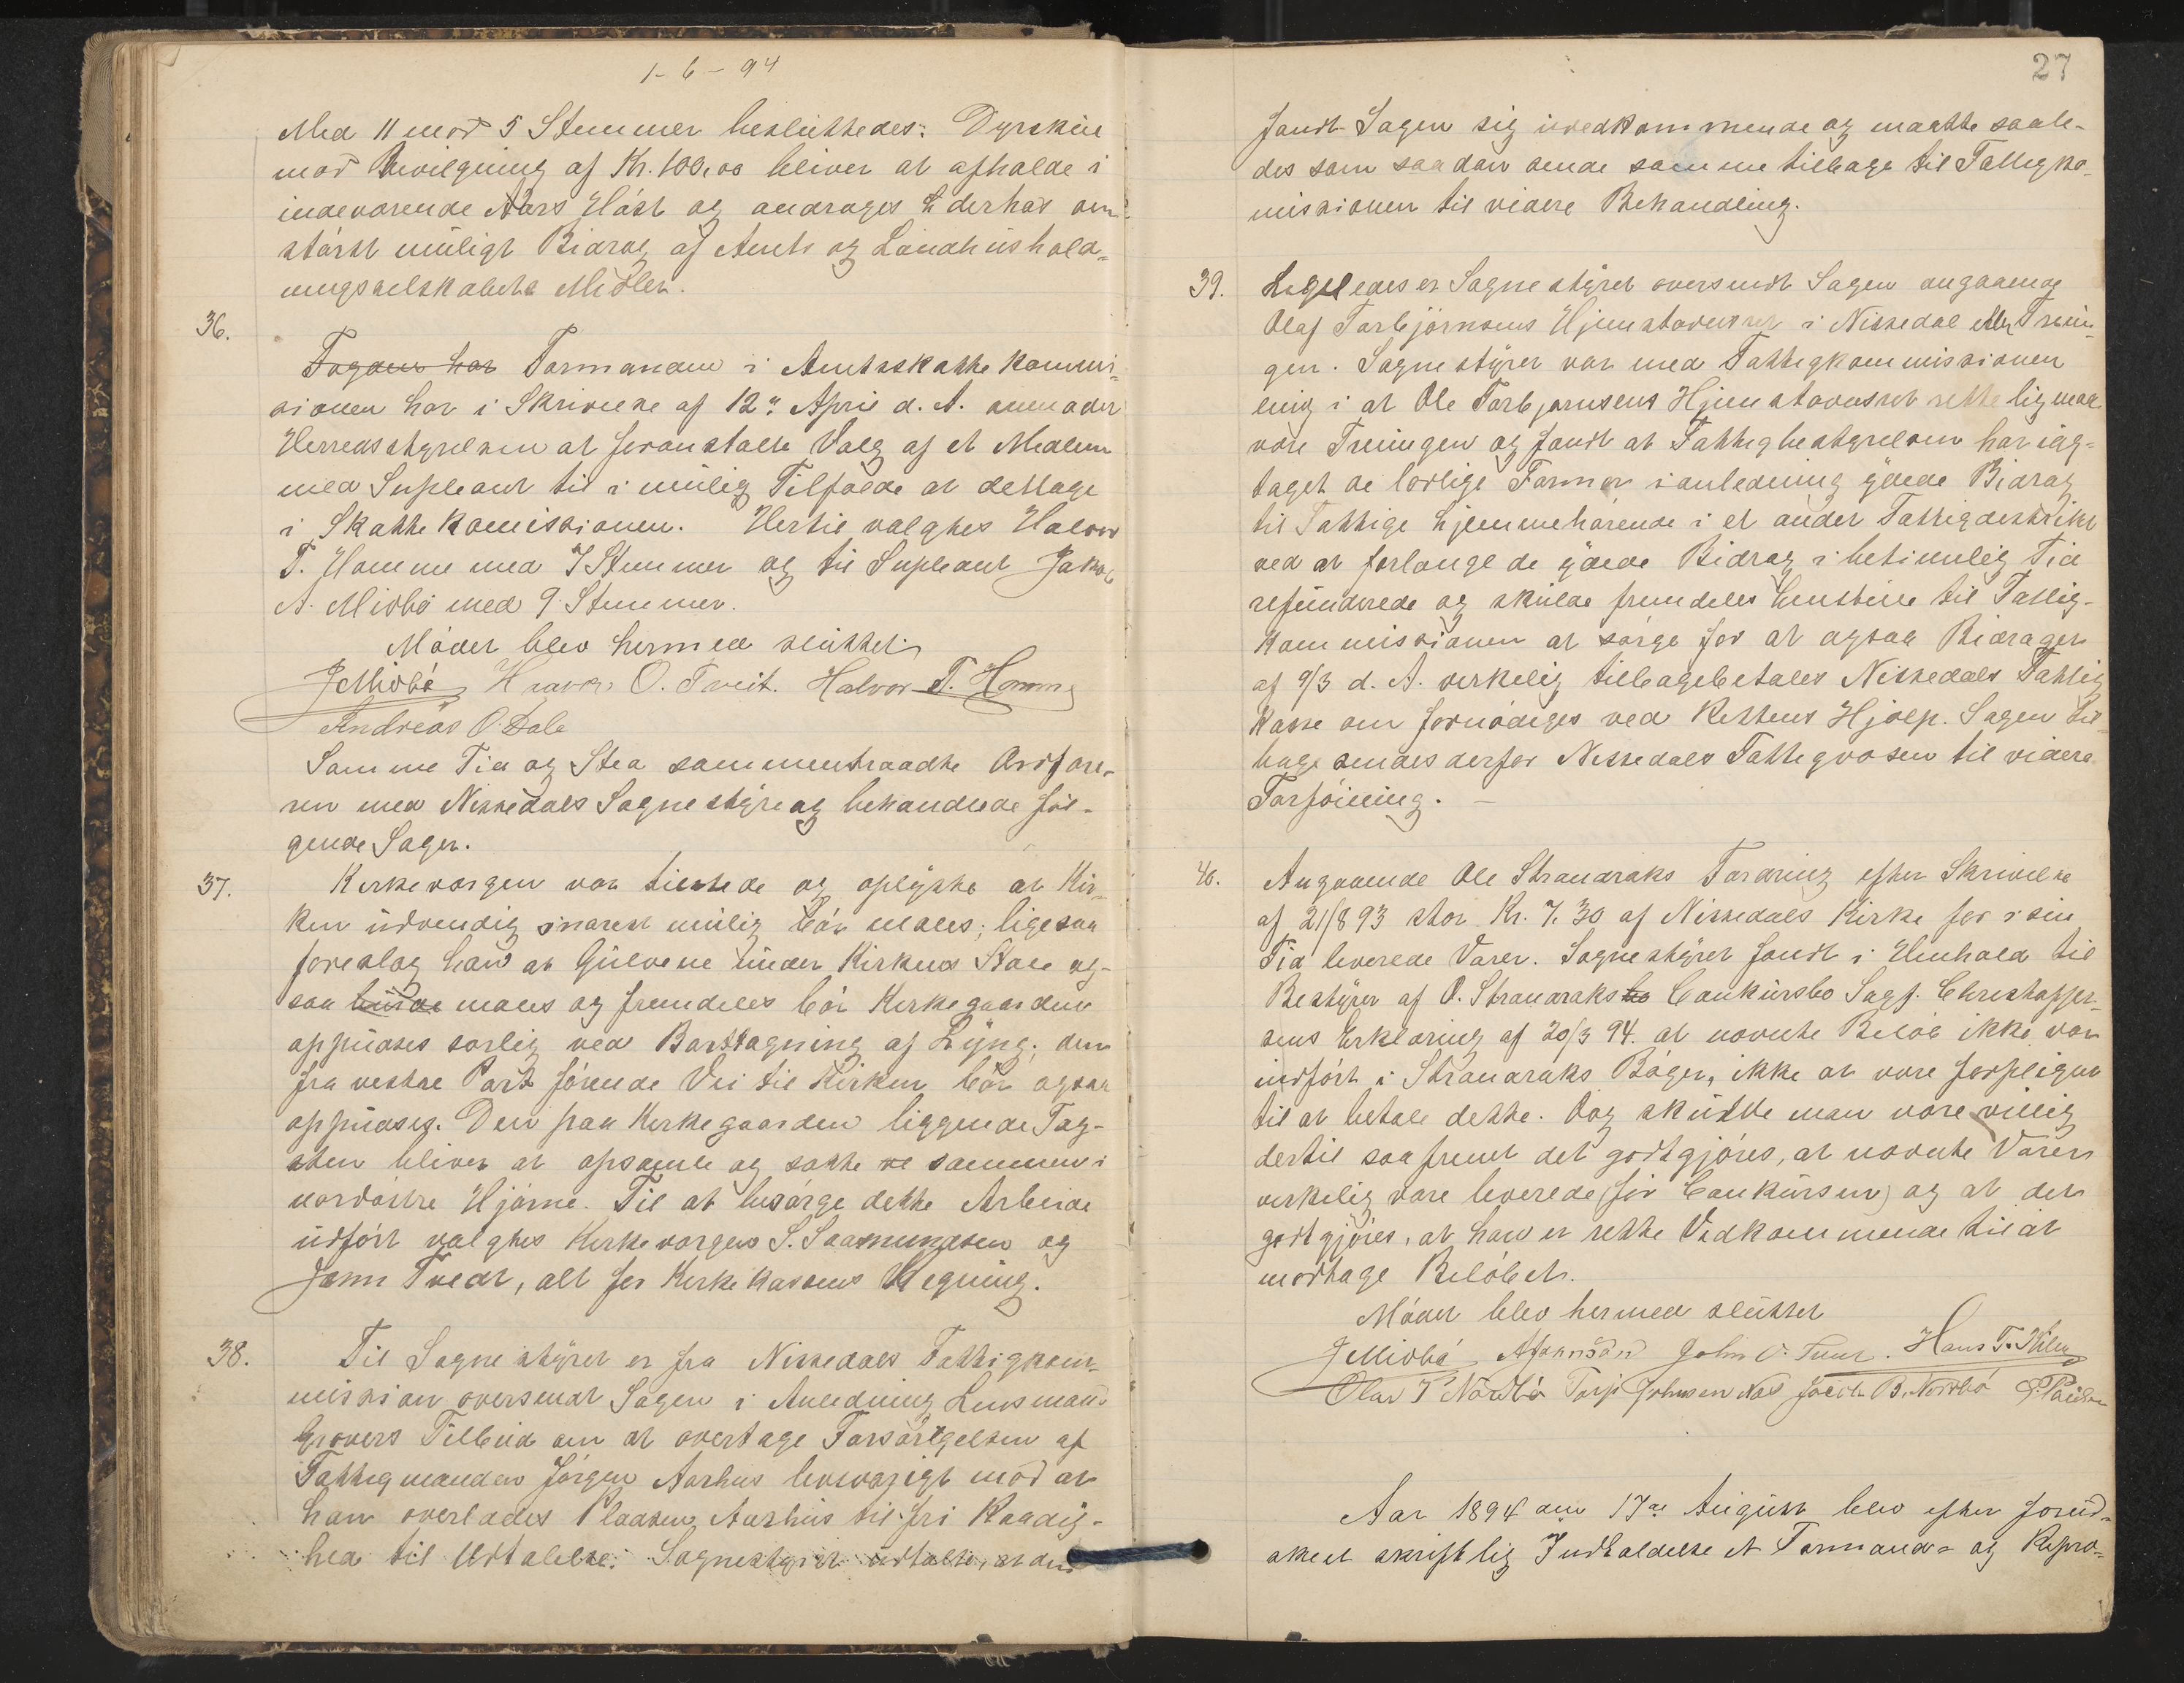 1-6-94
Med 11 mod 5 Stemmer besluttedes: Dyrskue
mod Bevilgning af Kr. 100,00 bliver at afholde i
indeværende Aars Høst og andrages derhos om
størst muligt Bidrag af Amts og Landhushold-
ningsselskabets Midler.
36.
Fogden har Formanden i Amtsskattekommis-
sionen har i Skrivelse af 12te April d. A. anmodet
Herredsstyrelsen at foranstalte Valg af et Medlem
med Supleant til i mulig Tilfælde at deltage
i Skattekomissionen. Hertil valgtes Halvor
T. Homme med 7 Stemmer og til Supleant Jakob
A. Midbø med 9 Stemmer.
Mødet blev hermed sluttet
J Midbø H O. Tveit. Halvor T. Homme
Andreas O. Dale
Samme Tid og Sted sammentraadte Ordføre-
ren med Nissedals Sognestyre og behandlede føl-
gende Sager.
37. Kirkevergen var tilstede og oplyste at Kir-
ken udvendig snarest mulig bør males; ligesaa
foreslog han at Gulvene under Kirkens Stole og-
saa burde males og fremdeles bør Kirkegaarden
oppudses særlig ved Borttagning af Lyng; den
fra vestre Port førende Vei til Kirken bør ogsaa
oppudses. Den paa Kirkegaarden liggende Tag-
sten bliver at opsamle og sætte sammen i
nordøstre Hjørne. Til at besørge dette Arbeide
udført valgtes Kirkevergen S. Saamundsen og
John Tvedt, alt for Kirkekassens Regning.
38. Til Sognestyret er fra Nissedals Fattigkom-
mission oversendt Sagen i Anledning Lensmand
Grovers Tilbud om at overtage Forsørgelsen af
Fattigmanden Jørgen Aarhus livsvarigt mod at
han overlades Pladsen Aarhus til fri Raadig-
hed til Udtalelse. Sognestyret udtalte, at det
27
fandt Sagen sig uvedkommende og maatte saale-
des som saadan sende samme tilbage til Fattigko-
missionen til videre Behandling.
39. Ligeledes er Sognestyret oversendt Sagen angaaende
Olaf Torbjørnsens Hjemstavnsret i Nissedal eller Trein-
gen. Sognestyret var med Fattigkommissionen
enig i at Ole Torbjørnsens Hjemstavnsret rettelig maa
være Treungen og fandt at Fattigbestyrelsen har iag-
taget de lovlige Former i anledning ydede Bidrag
til Fattige hjemmehørende i et andet Fattigdistrikt
ved at forlange de ydede Bidrag i betimelig Tid
refunderede og skulde fremdeles henstille til Fattig-
kommissionen at sørge for at ogsaa Bidraget
af 9/3 d. A. virkelig tilbagebetales Nissedals Fattig
kasse om fornødiges ved Rettens Hjælp. Sagen til-
bage sendes derfor Nissedals Fattigvæsen til videre
Forføining. —
40. Angaaende Ole Strandraks Fordring efter Skrivelse
af 21/8 93 stor Kr. 7.30 af Nissedals Kirke for i sin
Tid leverede Varer. Sognestyret fandt i Henhold til
Bestyrer af O. Strandraks bo Conkursbo Sagf. Christoffer-
sens Erklæring af 20/3 94. at nævnte Beløb ikke var
indført i Strandraks Bøger, ikke at være forpligtet
til at betale dette. Dog skulde man være villig
dertil saafremt det godtgjøres, at nævnte Varer
virkelig vare leverede (før Conkursen) og at det
godtgjøres, at han er rette Vedkommende til at
modtage Beløbet.
Mødet blev hermed sluttet
J Midbø John O. Hans T.
Olav T Nordbø Torje Johnsen Næs Jacob B. Nordbø
Aar 1894 den 17de August blev efter forud-
skeet skriftlig Indkaldelse et Formand- og Repræ-